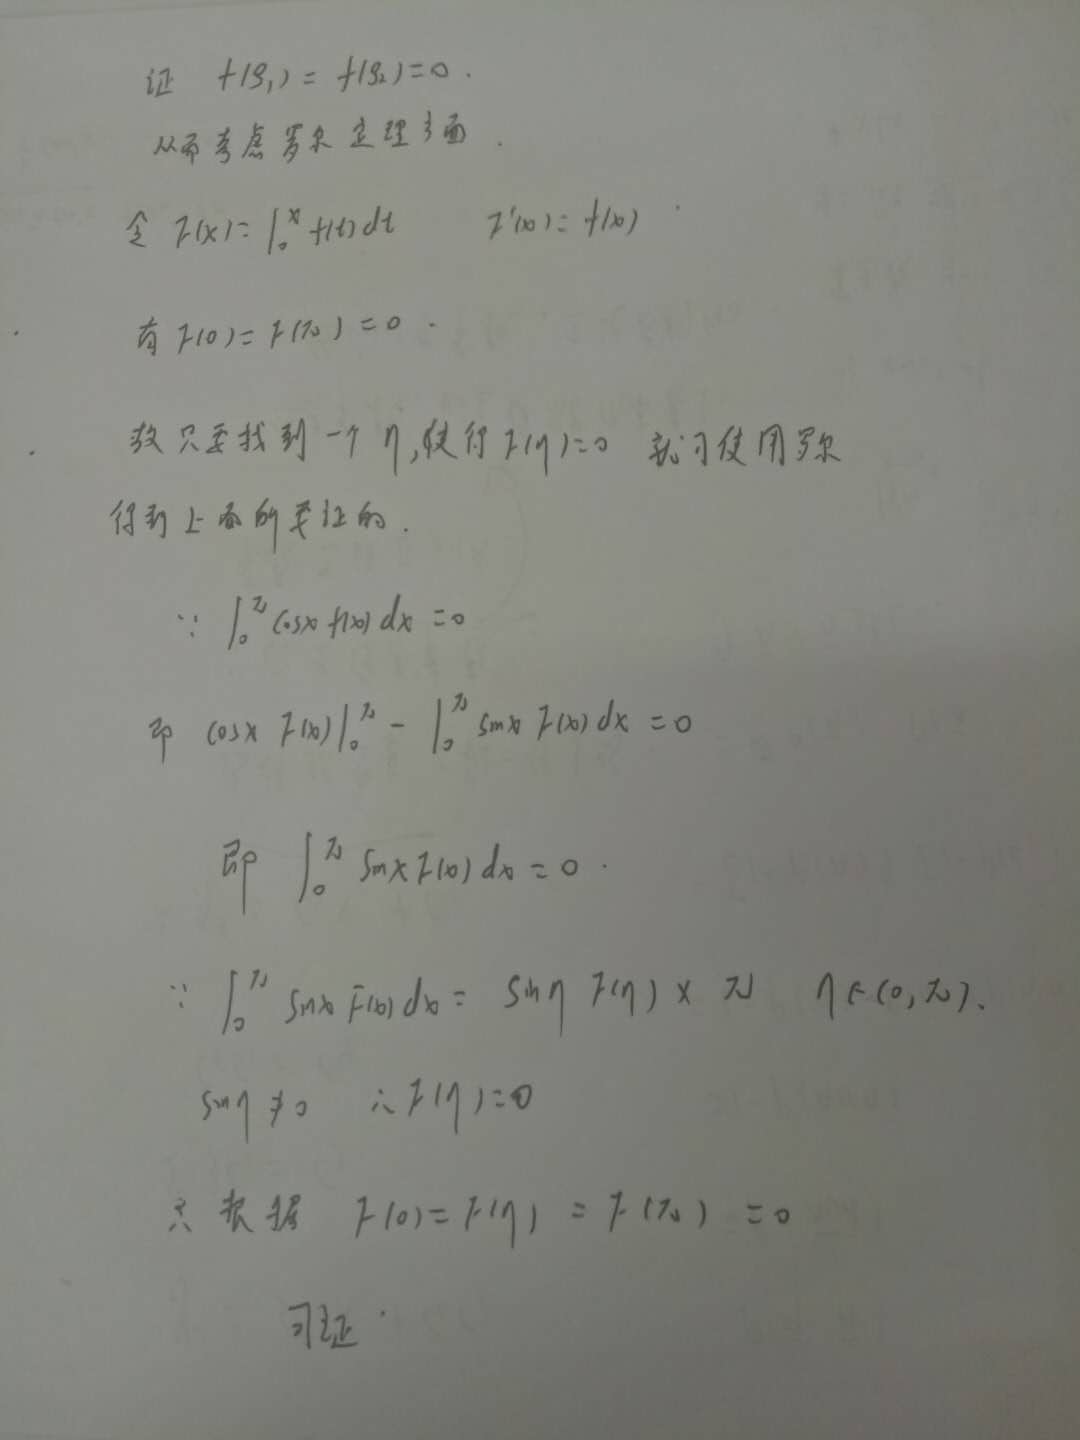 证 f(ξ₁) = f(ξ₂) = 0 .
从而考虑罗尔定理方面 .
令 F(x) = ∫₀ˣ f(t) dt F'(x) = f(x)
有 F(0) = F(π) = 0 .
故只要找到一个 η, 使得 F(η) = 0 就可使用罗尔
得到上面所要证的 .
∵ ∫₀^π cosx f(x) dx = 0
即 cosx F(x)|₀^π - ∫₀^π sinx F(x) dx = 0
即 ∫₀^π sinx F(x) dx = 0 .
∵ ∫₀^π sinx F(x) dx = sinη F(η) × π η∈(0, π).
sinη ≠ 0 ∴ F(η) = 0
∴ 根据 F(0) = F(η) = F(π) = 0
可证 .